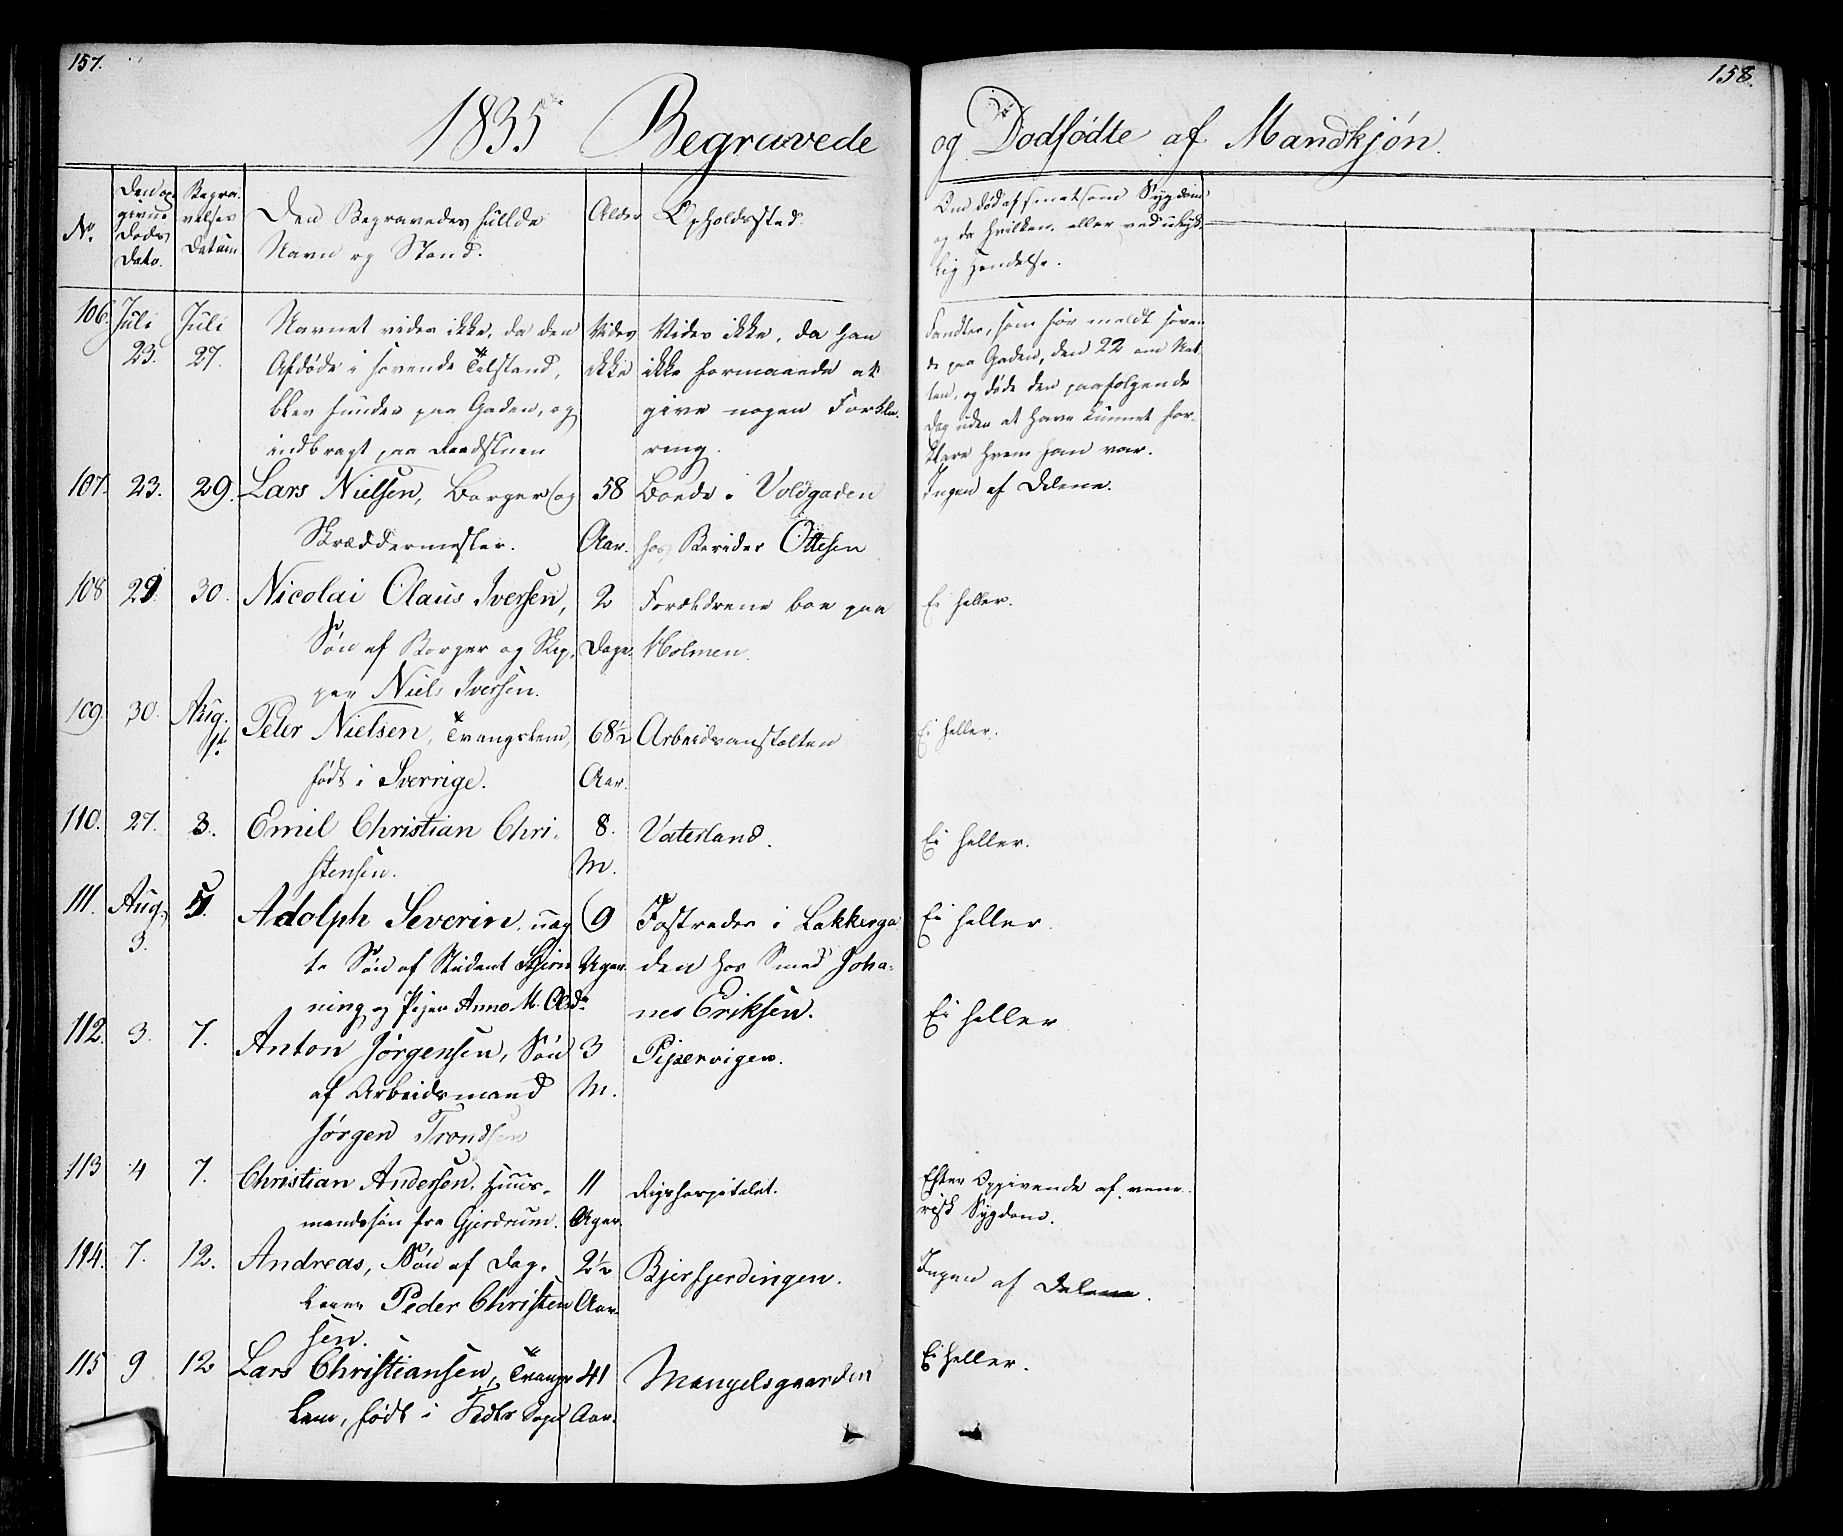 157.
158.
1835 Begravede
og Dødfødte af Mandkjøn.
No.
Den op-
givne
Døds
Dato.
Begra-
velses
Datum
Den Begravedes fulde
Navn og Stand.
Alder
Opholdssted.
Om død af smetsom Sygdom
og da hvilken, eller ved ulyk-
lig Hendelse.
106. Juli 23.
Juli 27.
Navnet vides ikke, da den
Afdøde i sovende Tilstand,
blev funden paa Gaden, og
indbragt paa Raadstuen
Vides
ikke
Vides ikke, da han
ikke formaaede at
give nogen Forkla-
ring.
Fandtes, som før meldt soven-
de paa Gaden, den 22 om Nat-
ten, og døde den paafølgende
Dag uden at have kunnet for-
klare hvem han var.
107. 23. 29. Lars Nielsen, Borger og
Skræddermester.
58
Aar.
Boede i Voldgaden
hos Berider Ottesen
Ingen af Delene.
108 29. 30. Nicolai Claus Iversen,
Søn af Borger og Skip-
per Niels Iversen.
2
Dage.
Forældrene boe paa
Holmen.
Ei heller.
109. 30. Aug. 1st.
Peter Nielsen, Trangslem,
født i Sverrige.
68½
Aar.
Arbeidsanstalten
Ei heller.
110. 27. 3. Emil Christian Chri-
stensen.
8.
M.
Vaterland.
Ei heller.
111. Aug. 3. 5. Adolph Severin, uæg-
te Søn af Student
og Pigen
9
Uger.
Fostredes i Lakkerga-
den hos Smed Joha-
nes Eriksen.
Ei heller.
112. 3. 7. Anton Jørgensen, Søn
af Arbeidsmand
Jørgen Trondsen
3
M.
Pipervigen.
Ei heller
113 4 7. Christian Andersen, Huus-
mandssøn fra Gjerdrum.
11
Uger.
Rigshospitalet.
Efter Opgivende af vene-
risk Sygdom.
114. 7. 12. Andreas, Søn af Dag-
lønner Peder Christen
sen.
2½
Aar.
Bjerfjerdingen.
Ingen af Delene.
115 9 12 Lars Christiansen, Trangs-
lem, født i Sogn
41
Aar.
Mangelsgaarden
Ei heller.